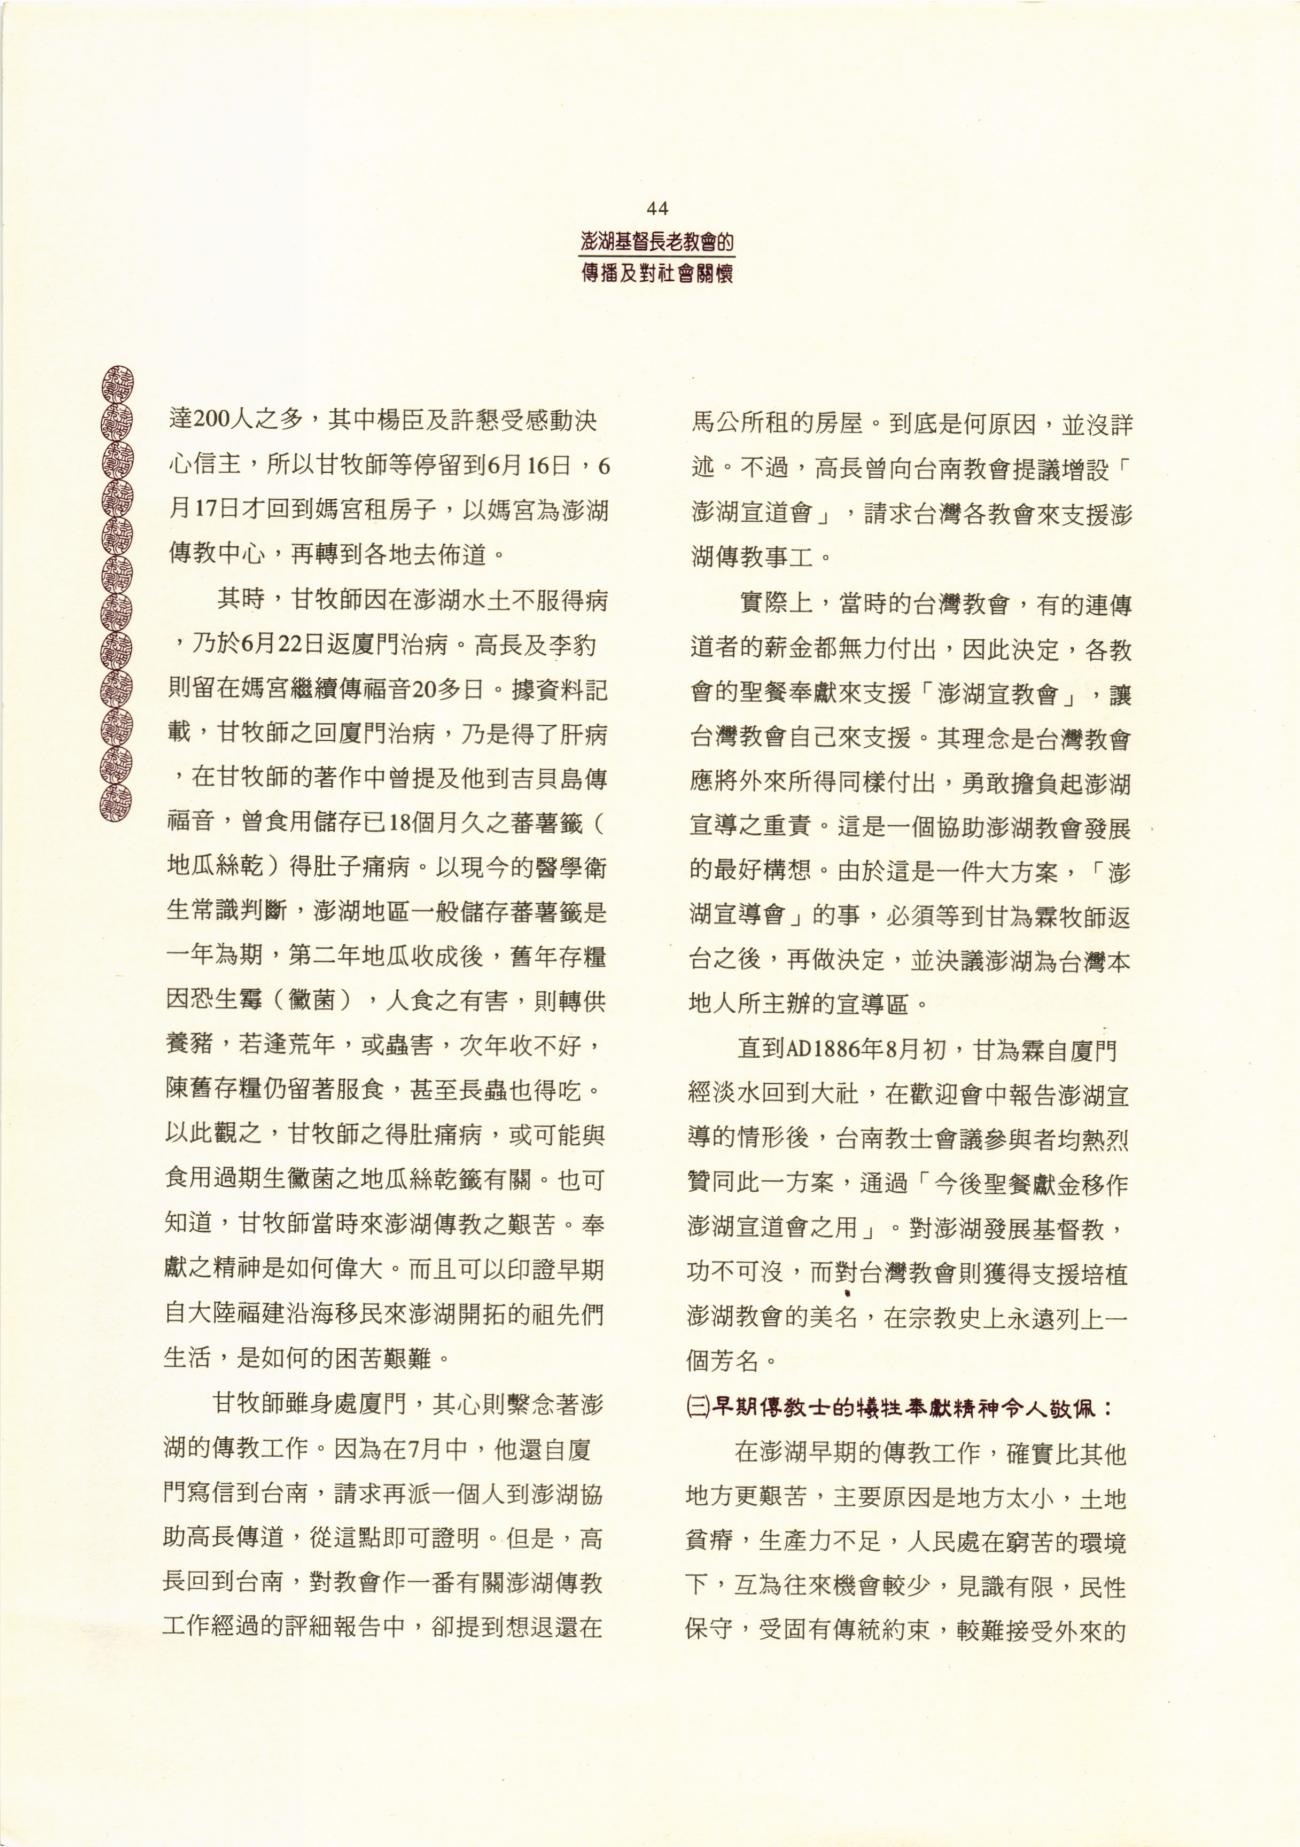 44
澎湖基督長老教會的
傳播及對社會關懷
達200人之多，其中楊臣及許懇受感動決
心信主，所以甘牧師等停留到6月16日，6
月17日才回到媽宮租房子，以媽宮為澎湖
傳教中心，再轉到各地去佈道。
其時，甘牧師因在澎湖水土不服得病
，乃於6月22日返廈門治病。高長及李豹
則留在媽宮繼續傳福音20多日。據資料記
載，甘牧師之回廈門治病，乃是得了肝病
，在甘牧師的著作中曾提及他到吉貝島傳
福音，曾食用儲存已18個月久之蕃薯籤（
地瓜絲乾）得肚子痛病。以現今的醫學衛
生常識判斷，澎湖地區一般儲存蕃薯籤是
一年為期，第二年地瓜收成後，舊年存糧
因恐生霉（黴菌），人食之有害，則轉供
養豬，若逢荒年，或蟲害，次年收不好，
陳舊存糧仍留著服食，甚至長蟲也得吃。
以此觀之，甘牧師之得肚痛病，或可能與
食用過期生黴菌之地瓜絲乾籤有關。也可
知道，甘牧師當時來澎湖傳教之艱苦。奉
獻之精神是如何偉大。而且可以印證早期
自大陸福建沿海移民來澎湖開拓的祖先們
生活，是如何的困苦艱難。
甘牧師雖身處廈門，其心則繫念著澎
湖的傳教工作。因為在7月中，他還自廈
門寫信到台南，請求再派一個人到澎湖協
助高長傳道，從這點即可證明。但是，高
長回到台南，對教會作一番有關澎湖傳教
工作經過的評細報告中，卻提到想退還在
馬公所租的房屋。到底是何原因，並沒詳
述。不過，高長曾向台南教會提議增設「
澎湖宣道會」，請求台灣各教會來支援澎
湖傳教事工。
實際上，當時的台灣教會，有的連傳
道者的薪金都無力付出，因此決定，各教
會的聖餐奉獻來支援「澎湖宣教會」，讓
台灣教會自己來支援。其理念是台灣教會
應將外來所得同樣付出，勇敢擔負起澎湖
宣導之重責。這是一個協助澎湖教會發展
的最好構想。由於這是一件大方案，「澎
湖宣導會」的事，必須等到甘為霖牧師返
台之後，再做決定，並決議澎湖為台灣本
地人所主辦的宣導區。
直到AD1886年8月初，甘為霖自廈門
經淡水回到大社，在歡迎會中報告澎湖宣
導的情形後，台南教士會議參與者均熱烈
贊同此一方案，通過「今後聖餐獻金移作
澎湖宣道會之用」。對澎湖發展基督教，
功不可沒，而對台灣教會則獲得支援培植
澎湖教會的美名，在宗教史上永遠列上一
個芳名。
㈢早期傳教士的犧牲奉獻精神令人敬佩：
在澎湖早期的傳教工作，確實比其他
地方更艱苦，主要原因是地方太小，土地
貧瘠，生產力不足，人民處在窮苦的環境
下，互為往來機會較少，見識有限，民性
保守，受固有傳統約束，較難接受外來的